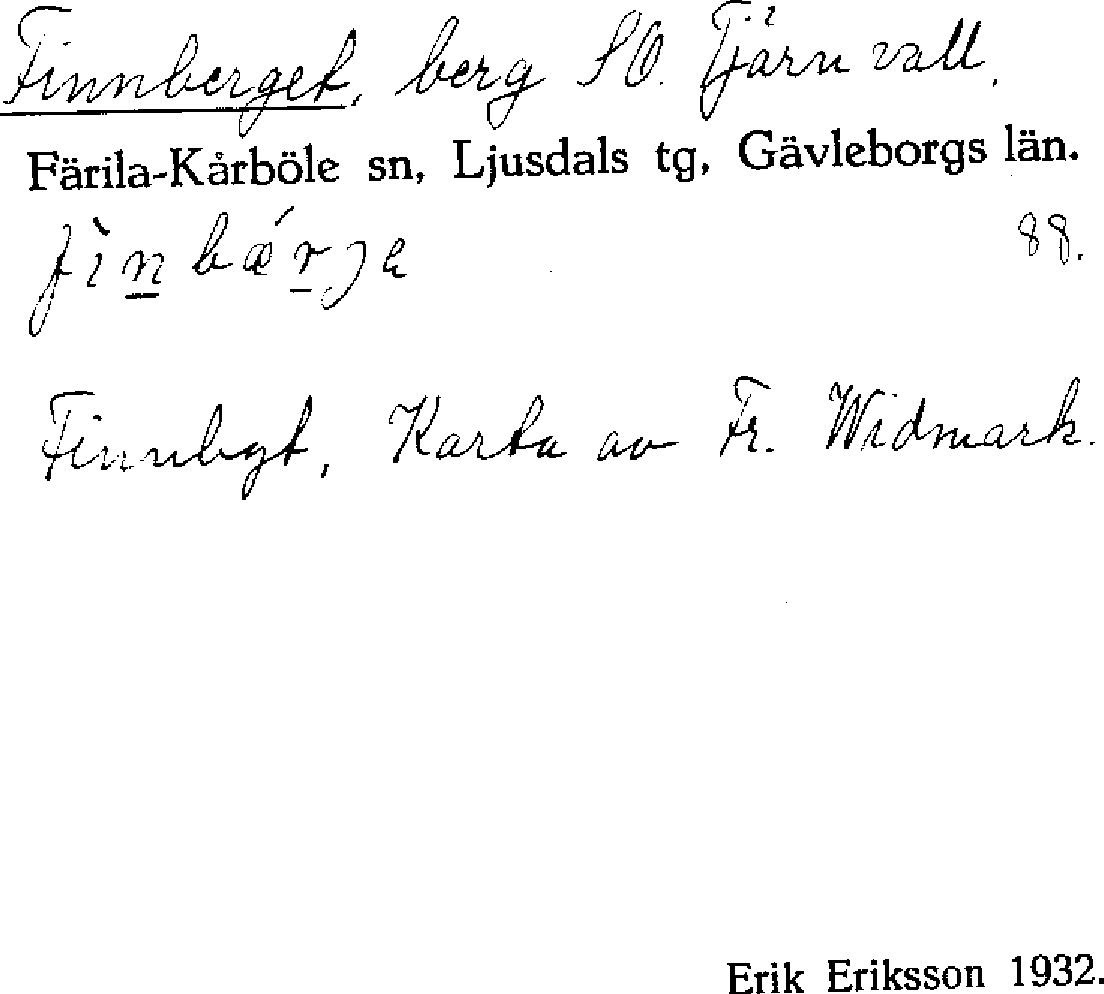 Finnberget, berg SO. Tjärnvall.
Färila-Kårböle sn, Ljusdals tg, Gävleborgs län.
fìnbǽrje 88.
Finnbgt, Karta av Fr. Widmark.
Erik Eriksson 1932.